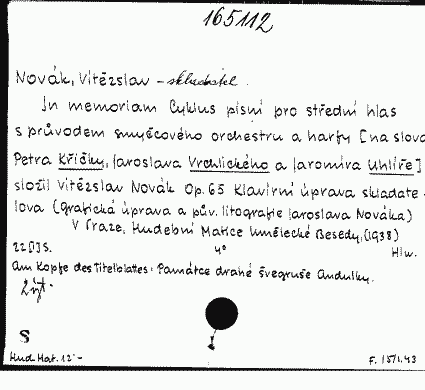 165112
Novák, Vítězslav – skladatel.
In memoriam Cyklus písní pro střední hlas
s průvodem smyčcového orchestru a harfy [na slova
Petra Křičky, Jaroslava Vrchlického a Jaromíra Uhlíře]
složil Vítězslav Novák Op. 65 Klavírní úprava skladate-
lova (grafická úprava a pův. litografie Jaroslava Nováka)
V Praze, Hudební Matice Umělecké Besedy, (1938)
22 [?]S. 4° Hlw.
Am Kopfe des Titelblattes: Památce drahé švegruše Andulky.
S
Hud Mat. 12·–
F. 15/1.43